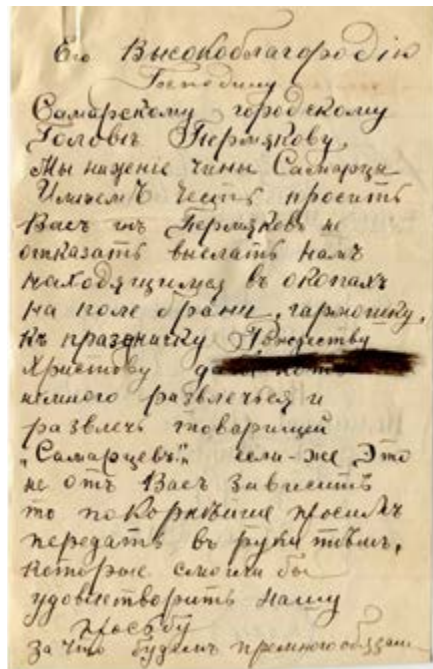 Его Высокоблагородiю
Господину
Самарскому городскому
Головѣ Пермякову,
Мы нижнiе чины Самарцы
Имѣемъ честь просить
Васъ гнъ Пермяковъ не
отказать выслать намъ
находящимся въ окопахъ
на поле брани, гармошку,
къ празднику Рождеству
Христову
немного развлечься и
развлечь товарищей
„Самарцевъ". если-же Это
не отъ Васъ зависитъ
то покорнѣйше просимъ
передать въ руки тѣмъ,
которые смогли бы
удовлетворить нашу
просьбу
за что будемъ премного обязаны